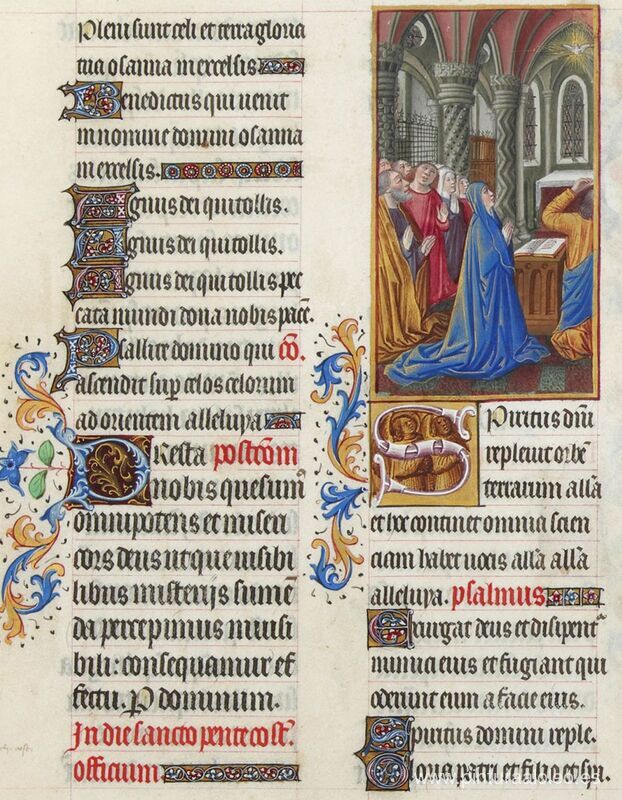 Pleni sunt celi et terra gloria
tua osanna in excelsis.
Benedictus qui uenit
in nomine domini osanna
in excelsis.
Agnus dei qui tollis.
Agnus dei qui tollis.
Agnus dei qui tollis pec
cata mundi dona nobis pacē.
Psallite domino qui cō.
ascendit sup celos celorum
ad orientem alleluya
Presta postcōm
nobis quesum̄
omnipotens et miseri
cors deus ut que uisibi
libus misterijs sumē
da percepimus inuisi
bili: consequamur ef
fectu. P dominum.
In die sancto pentecost̄.
officium
Spiritus dn̄i
repleuit orbē
terrarum all̄a
et hoc continet omnia scien
ciam habet uocis all̄a all̄a
alleluya. psalmus
Exurgat deus et disipent̄
inimici eius et fugiant qui
oderunt eum a facie eius.
Spiritus domini reple.
Gloria patri et filio et spi.